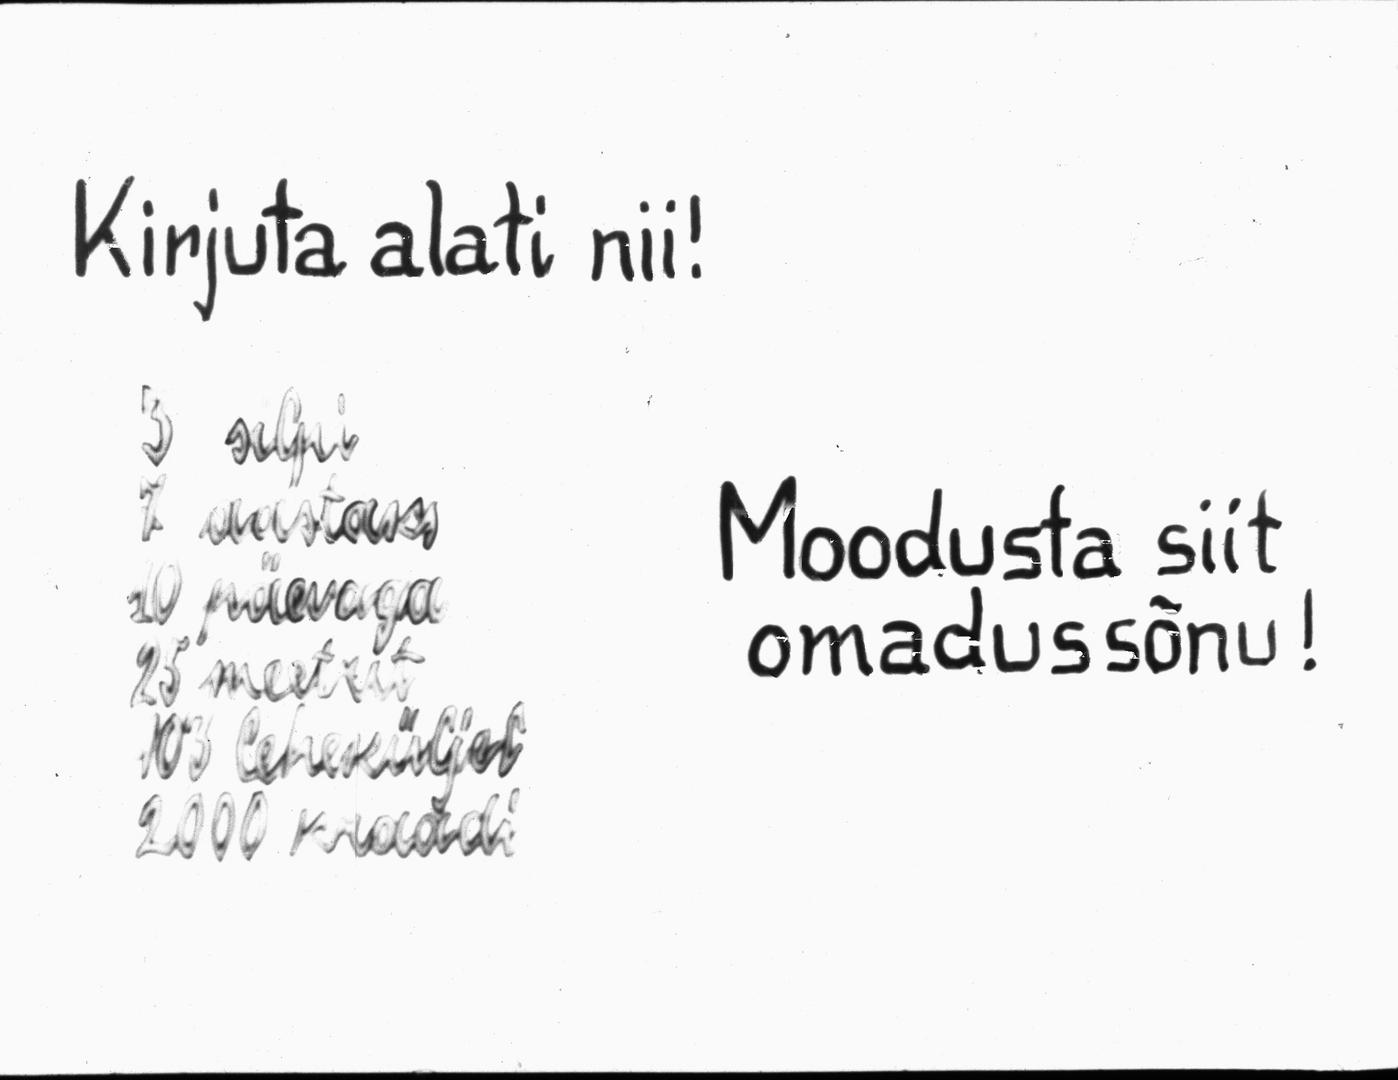 Kirjuta alati nii!
3 silpi
7 aastases
10 päevaga
25 meetrit
103 leheküljel
2000 kraadi
Moodusta siit
omadussõnu!